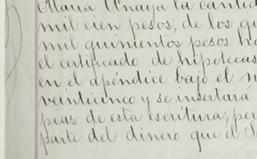 Maria Anaya la cantid
mil cien pesos, de los qu
mil quinientos pesos ha
el certificado de hipotecas
en el apéndice bajo el n
veinticinco y se insertará
pias de esta escritura, per
parte del dinero que el S